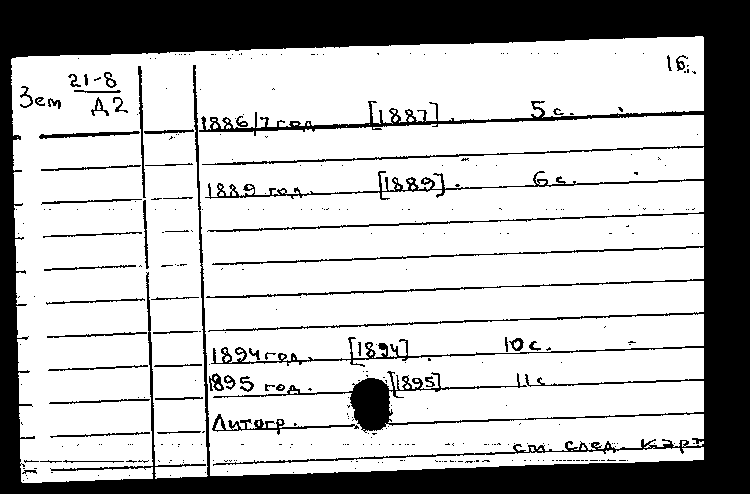 16.
Зем 21-8
Д2
1886/7 год [1887]. 5 с.
1889 год. [1889]. 6 с.
1894 год. [1894]. 10 с.
1895 год. [1895] 11 с
Литогр.
см. след. карт